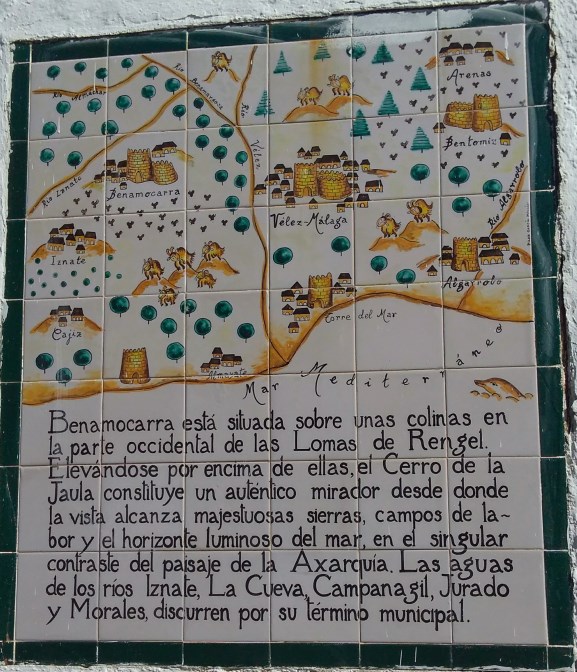 Arenas
Bentomiz
Benamocarra
Río Iznate
Río
Vélez
Vélez-Málaga
Río Algarrobo
Iznate
Algarrobo
Cajiz
Torre del Mar
Almayate
Mar Mediterráneo
Benamocarra está situada sobre unas colinas en
la parte occidental de las Lomas de Rengel.
Elevándose por encima de ellas, el Cerro de la
Jaula constituye un auténtico mirador desde donde
la vista alcanza majestuosas sierras, campos de la-
bor y el horizonte luminoso del mar, en el singular
contraste del paisaje de la Axarquía. Las aguas
de los ríos Iznate, La Cueva, Campanagil, Jurado
y Morales, discurren por su término municipal.